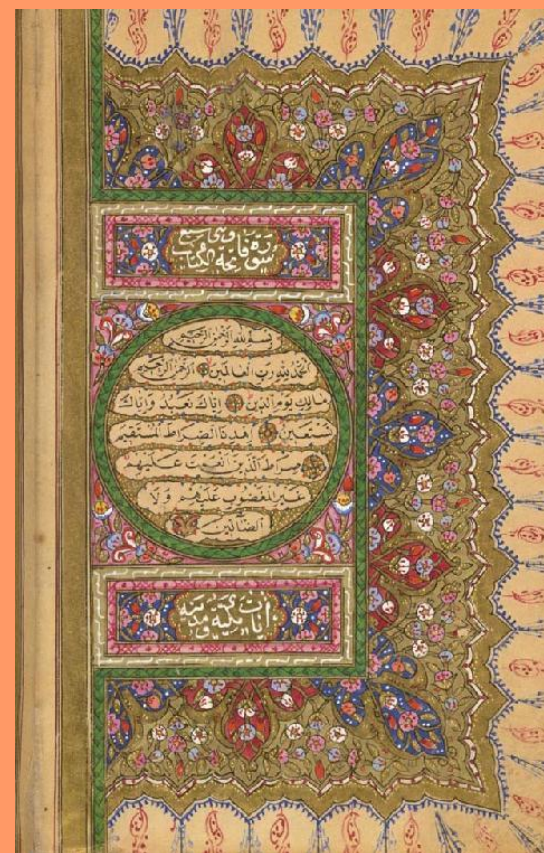 سورة فاتحة الكتاب وهي سبع
بِسْمِ اللهِ الرَّحْمٰنِ الرَّحِيمِ
اَلْحَمْدُ لِلّٰهِ رَبِّ الْعَالَمِينَ الرَّحْمٰنِ الرَّحِيمِ
مَالِكِ يَوْمِ الدِّينِ اِيَّاكَ نَعْبُدُ وَاِيَّاكَ
نَسْتَعِينُ اِهْدِنَا الصِّرَاطَ الْمُسْتَقِيمَ
صِرَاطَ الَّذِينَ اَنْعَمْتَ عَلَيْهِمْ
غَيْرِ الْمَغْضُوبِ عَلَيْهِمْ وَلَا
الضَّالِّينَ
آيات مكية ومدنية